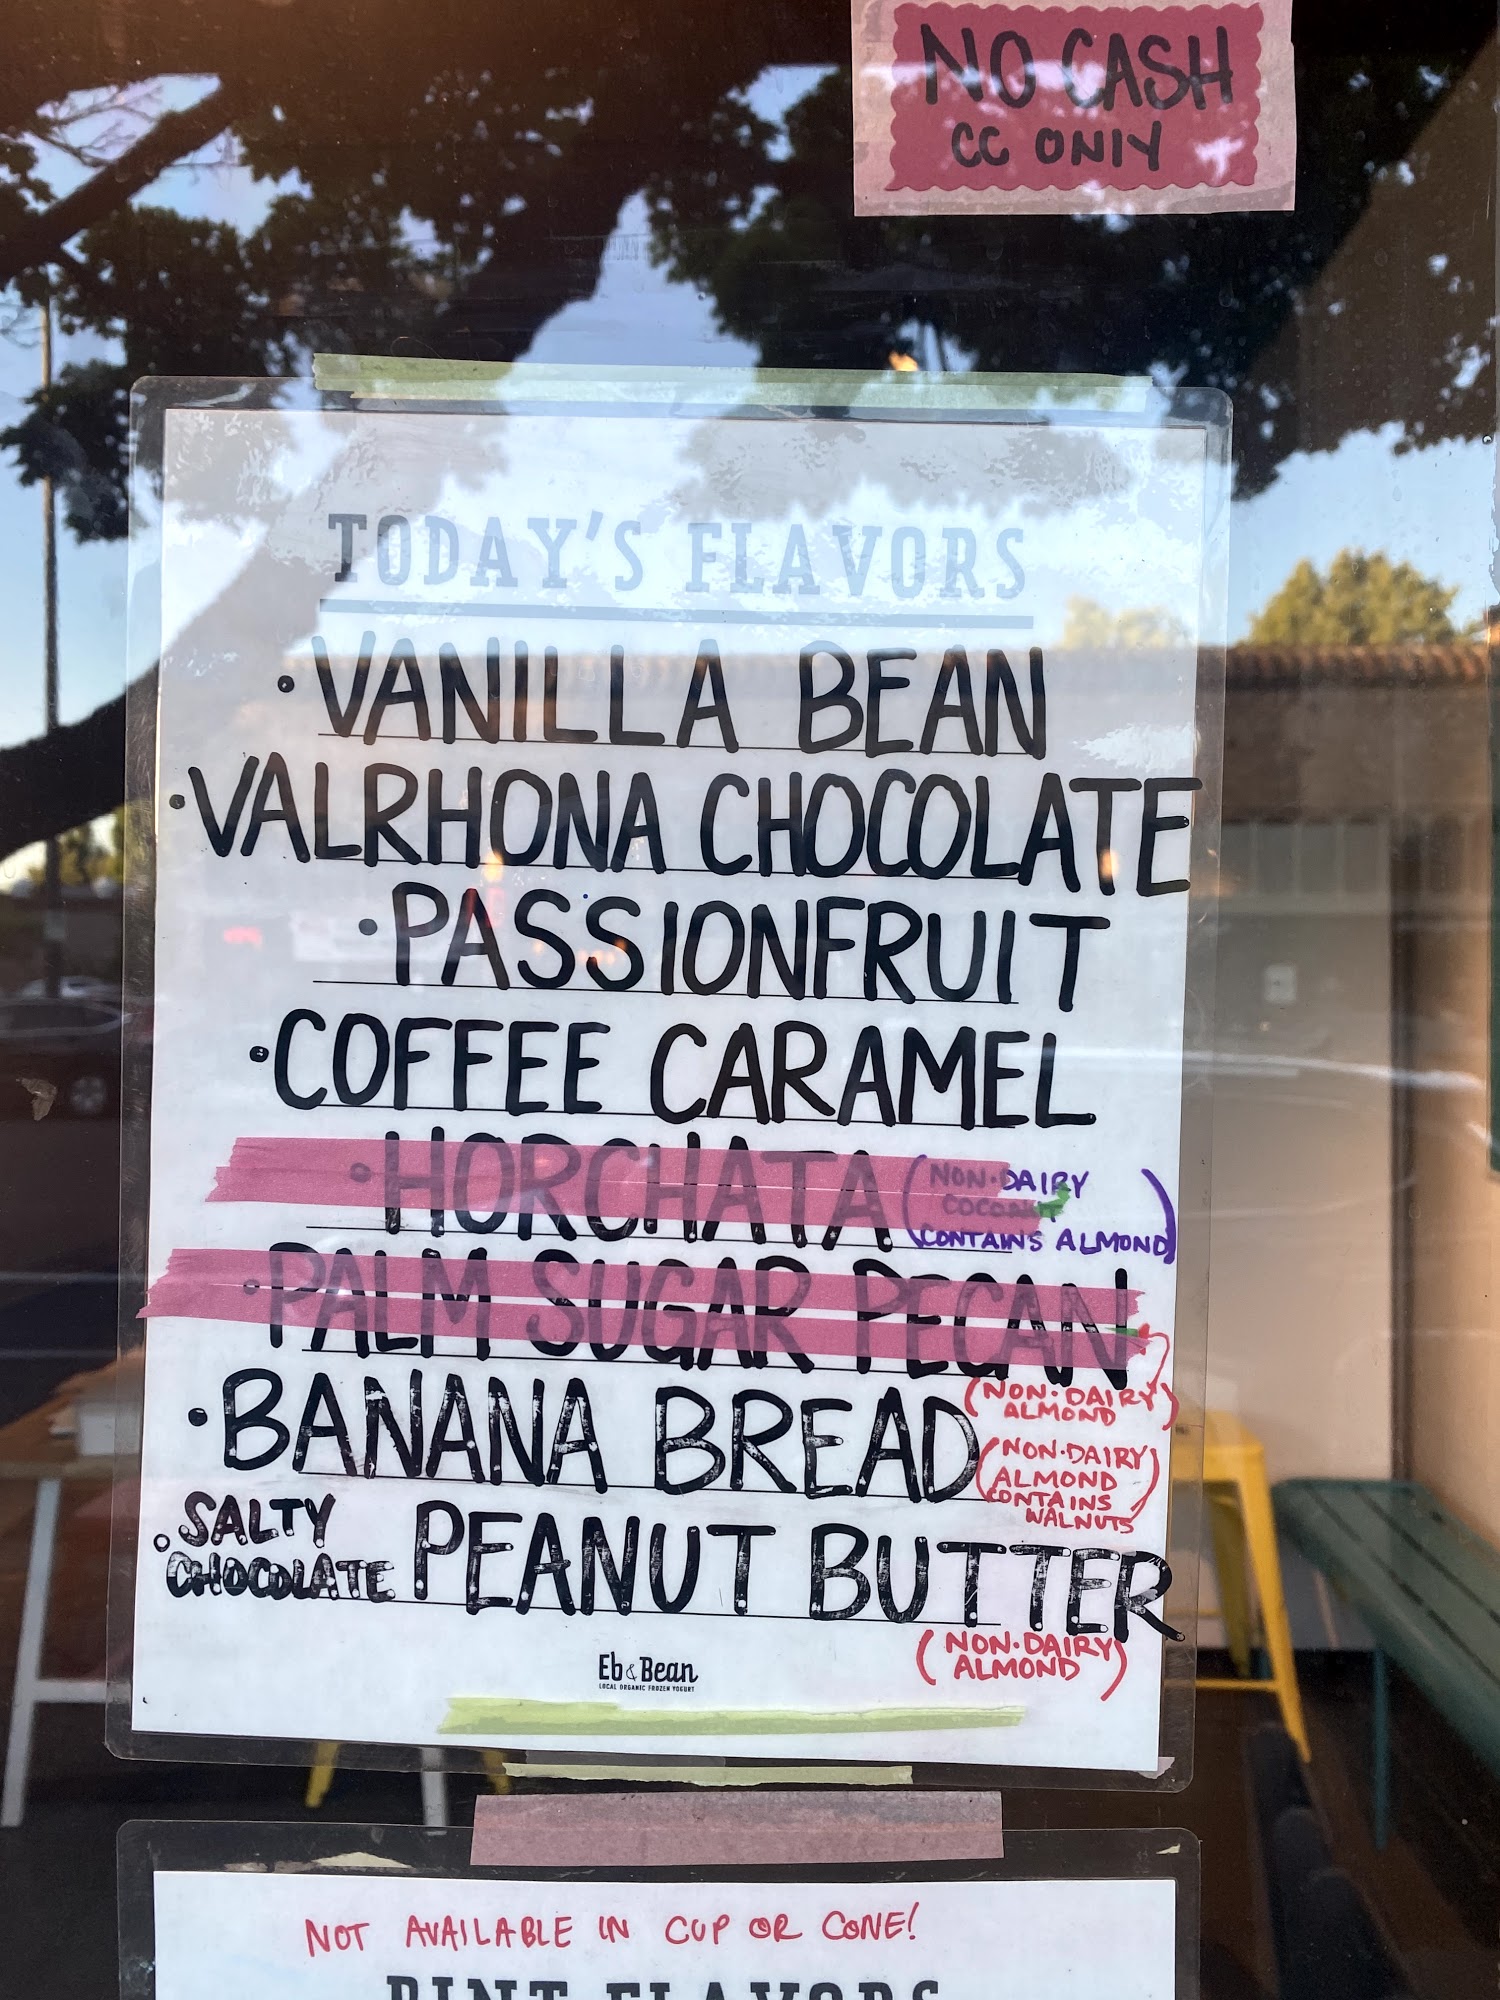 NO CASH
CC ONLY
TODAY'S FLAVORS
• VANILLA BEAN
• VALRHONA CHOCOLATE
• PASSIONFRUIT
• COFFEE CARAMEL
• HORCHATA (NON-DAIRY
COCONUT
CONTAINS ALMOND)
• PALM SUGAR PECAN
(NON-DAIRY
ALMOND)
• BANANA BREAD
(NON-DAIRY
ALMOND
CONTAINS
WALNUTS)
• SALTY
CHOCOLATE PEANUT BUTTER
(NON-DAIRY
ALMOND)
Eb & Bean
LOCAL ORGANIC FROZEN YOGURT
NOT AVAILABLE IN CUP OR CONE!
PINT FLAVORS